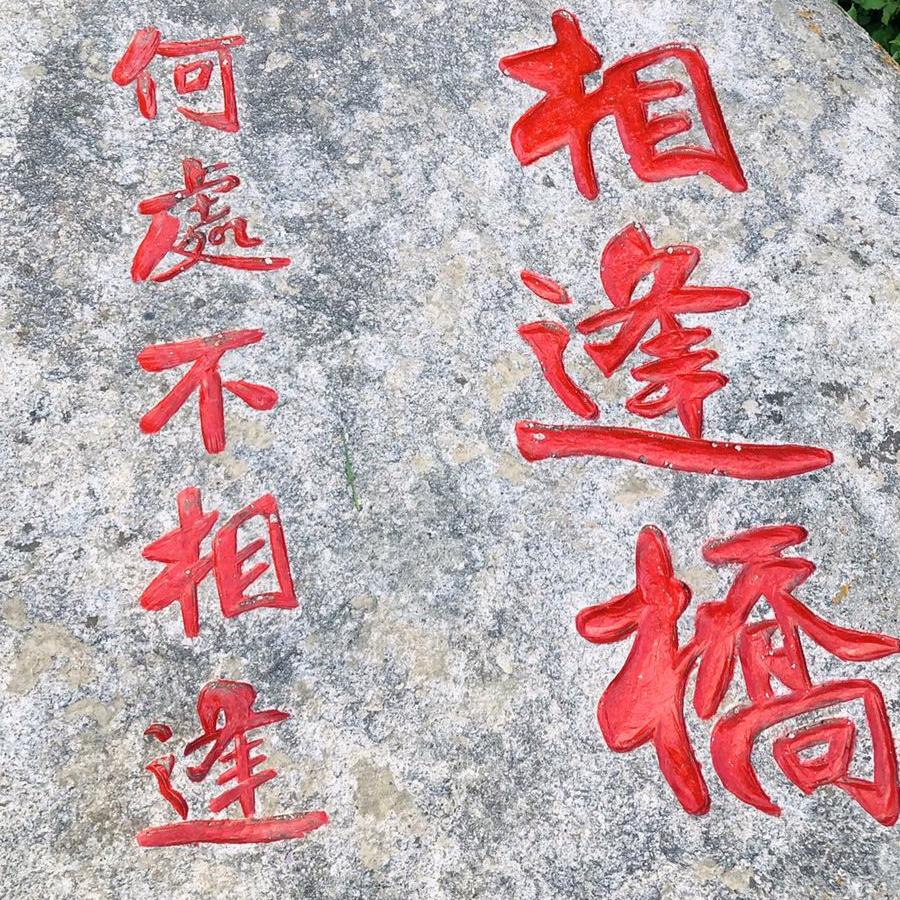 相逢橋
何處不相逢